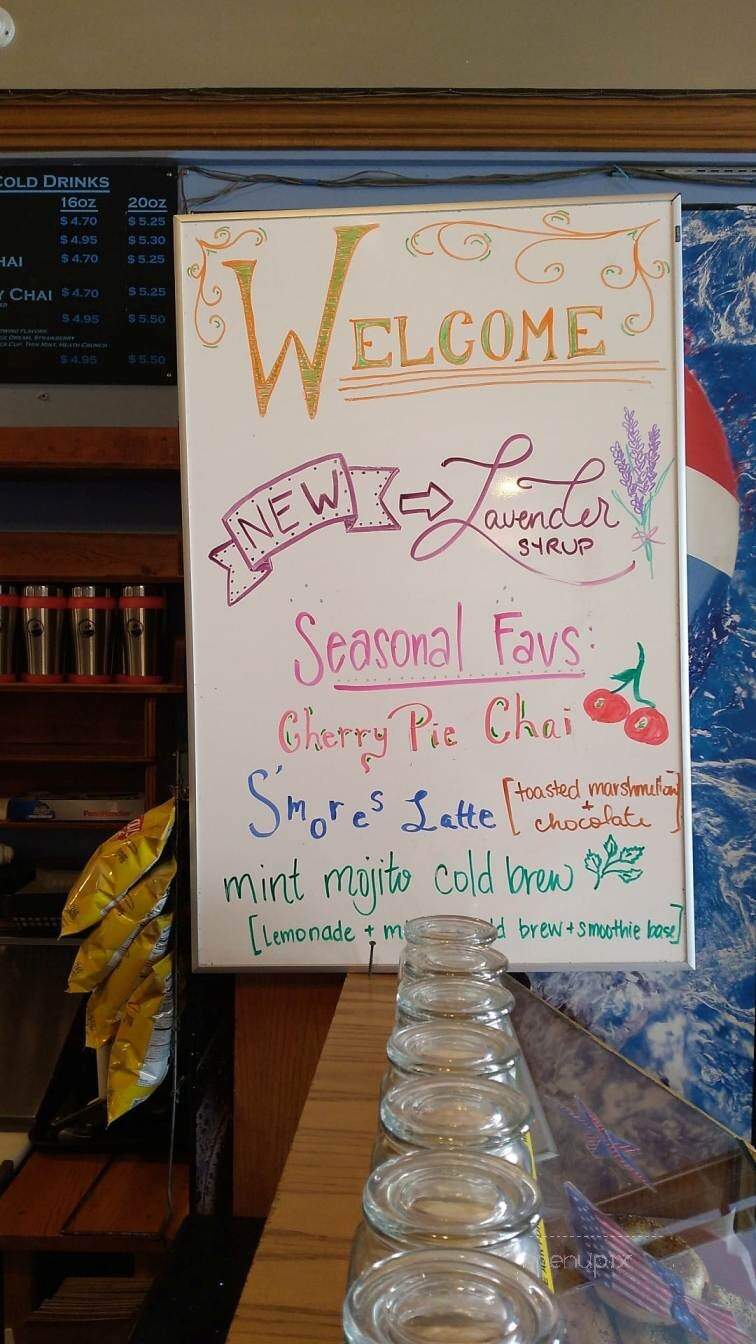 COLD DRINKS
16OZ 20OZ
$4.70 $5.25
$4.95 $5.30
HAI $4.70 $5.25
Y CHAI $4.70 $5.25
$4.95 $5.50
$4.95 $5.50
WELCOME
NEW
Lavender
SYRUP
Seasonal Favs:
Cherry Pie Chai
S'mores Latte [toasted marshmellow
+
chocolate]
mint mojito cold brew
[Lemonade + brew + smoothie base]
enupix